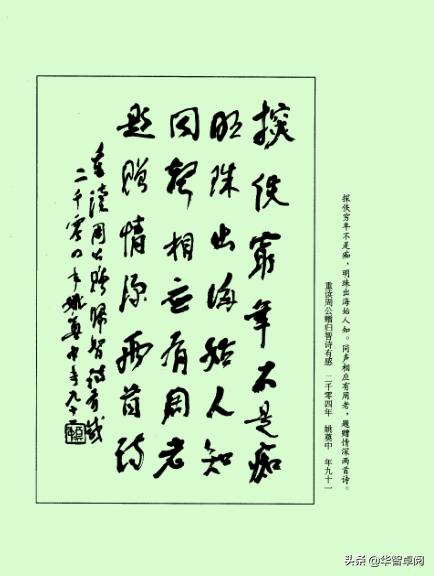 探佚窮年不是痴
明珠出海始人知
同聲相应有周老
題贈情深兩首詩
重讀周公贈歸智詩有感
二千零四年姚奠中年九十一
探佚穷年不是痴，明珠出海始人知。同声相应有周老，题赠情深两首诗。
重读周公赠归智诗有感 二千零四年 姚奠中 年九十一
头条@华智卓阅